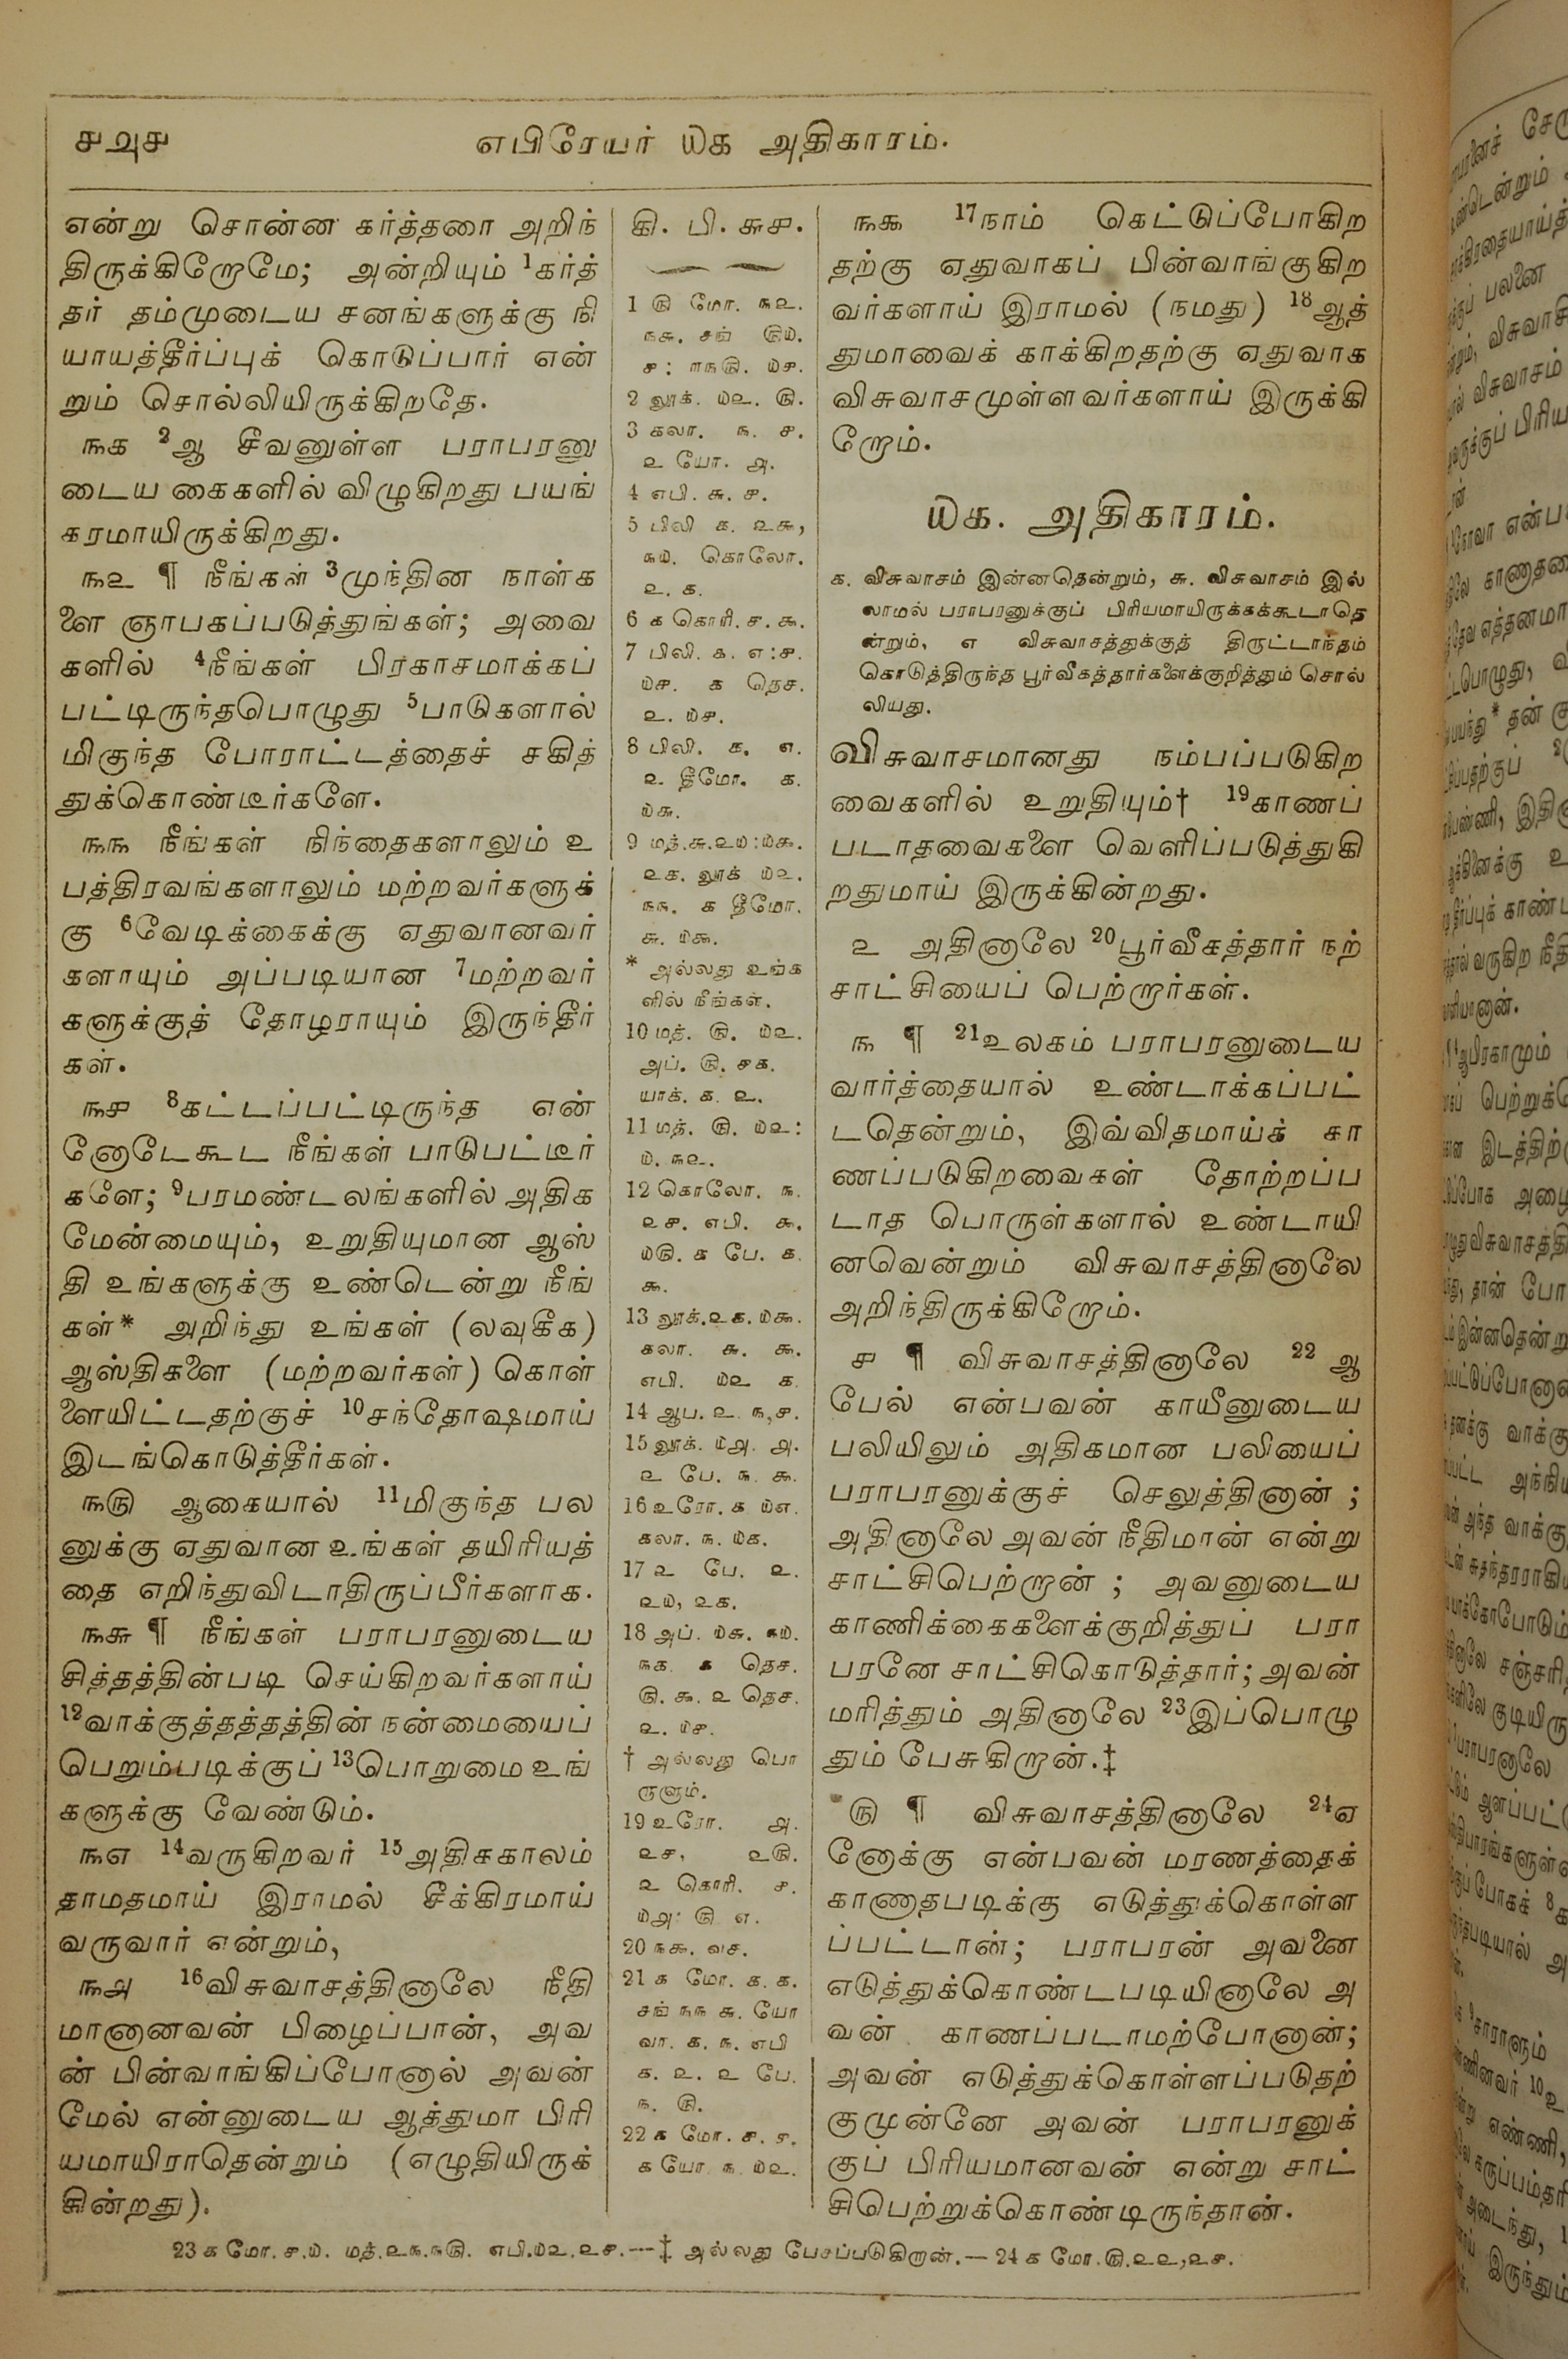 ௪௰௪
எபிரேயர் ௰௧ அதிகாரம்.
என்று சொன்ன கர்த்தரை அறிந்
திருக்கிறோமே; அன்றியும் 1கர்த்
தர் தம்முடைய சனங்களுக்கு நி
யாயத்தீர்ப்புக் கொடுப்பார் என்
றும் சொல்லியிருக்கிறதே.
௩௧ 2ஆ சீவனுள்ள பராபரனு
டைய கைகளில் விழுகிறது பயங்
கரமாயிருக்கிறது.
௩௨ ¶ நீங்கள் 3முந்தின நாள்க
ளை ஞாபகப்படுத்துங்கள்; அவை
களில் 4நீங்கள் பிரகாசமாக்கப்
பட்டிருந்தபொழுது 5பாடுகளால்
மிகுந்த போராட்டத்தைச் சகித்
துக்கொண்டீர்களே.
௩௩ நீங்கள் நிந்தைகளாலும் உ
பத்திரவங்களாலும் மற்றவர்களுக்
கு 6வேடிக்கைக்கு ஏதுவானவர்
களாயும் அப்படியான 7மற்றவர்
களுக்குத் தோழராயும் இருந்தீர்
கள்.
௩௪ 8கட்டப்பட்டிருந்த என்
னோடேகூட நீங்கள் பாடுபட்டீர்
களே; 9பரமண்டலங்களில் அதிக
மேன்மையும், உறுதியுமான ஆஸ்
தி உங்களுக்கு உண்டென்று நீங்
கள்* அறிந்து உங்கள் (லவுகீக)
ஆஸ்திகளை (மற்றவர்கள்) கொள்
ளையிட்டதற்குச் 10சந்தோஷமாய்
இடங்கொடுத்தீர்கள்.
௩௫ ஆகையால் 11மிகுந்த பல
னுக்கு ஏதுவான உங்கள் தயிரியத்
தை எறிந்துவிடாதிருப்பீர்களாக.
௩௬ ¶ நீங்கள் பராபரனுடைய
சித்தத்தின்படி செய்கிறவர்களாய்
12வாக்குத்தத்தத்தின் நன்மையைப்
பெறும்படிக்குப் 13பொறுமை உங்
களுக்கு வேண்டும்.
௩௭ 14வருகிறவர் 15அதிககாலம்
தாமதமாய் இராமல் சீக்கிரமாய்
வருவார் என்றும்,
௩௮ 16விசுவாசத்தினாலே நீதி
மானானவன் பிழைப்பான், அவ
ன் பின்வாங்கிப்போனால் அவன்
மேல் என்னுடைய ஆத்துமா பிரி
யமாயிராதென்றும் (எழுதியிருக்
கின்றது).
கி. பி. ௬௪.
1 ௫ மோ. ௩௨.
௩௬. சங் ௫௰.
௪: ௱௩௫. ௰௪.
2 லூக். ௰௨. ௫.
3 கலா. ௩. ௪.
௨ யோ. ௮.
4 எபி. ௬. ௪.
5 பிலி ௧. ௨௯,
௩௰. கொலோ.
௨. ௧.
6 ௧ கொரி. ௪. ௯.
7 பிலி. ௧. ௭:௪.
௰௪. ௧ தெச.
௨. ௰௪.
8 பிலி. ௧. ௭.
௨ தீமோ. ௧.
௰௬.
9 மத்.௬.௨௰:௰௯.
௨௧. லூக் ௰௨.
௩௩. ௧ தீமோ.
௬. ௰௯.
* அல்லது உங்க
ளில் நீங்கள்.
10 மத். ௫. ௰௨.
அப். ௫. ௪௧.
யாக். ௧. ௨.
11 மத். ௫. ௰௨:
௰. ௩௨.
12 கொலோ. ௩.
௨௪. எபி. ௯.
௰௫. ௧ பே. ௧.
௯.
13 லூக்.௨௧.௰௯.
கலா. ௬. ௯.
எபி. ௰௨ ௧.
14 ஆப. ௨. ௩,௪.
15 லூக். ௰௮. ௮.
௨ பே. ௩. ௯.
16 உரோ. ௧ ௰௭.
கலா. ௩. ௰௧.
17 ௨ பே. ௨.
௨௰, ௨௧.
18 அப். ௰௬. ௩௰.
௩௧. ௧ தெச.
௫. ௯. ௨ தெச.
௨. ௰௪.
† அல்லது பொ
ருளும்.
19 உரோ. ௮.
௨௪, ௨௫.
௨ கொரி. ௪.
௰௮: ௫ ௭.
20 ௩௯. வச.
21 ௧ மோ. ௧. ௧.
சங் ௩௩ ௬. யோ
வா. ௧. ௩. எபி
௧. ௨. ௨ பே.
௩. ௫.
22 ௧ மோ. ௪. ௪.
௧ யோ ௩ ௰௨.
௩௯ 17நாம் கெட்டுப்போகிற
தற்கு ஏதுவாகப் பின்வாங்குகிற
வர்களாய் இராமல் (நமது) 18ஆத்
துமாவைக் காக்கிறதற்கு ஏதுவாக
விசுவாசமுள்ளவர்களாய் இருக்கி
றோம்.
௰௧. அதிகாரம்.
௧. விசுவாசம் இன்னதென்றும், ௬. விசுவாசம் இல்
லாமல் பராபரனுக்குப் பிரியமாயிருக்கக்கூடாதெ
ன்றும், ௭ விசுவாசத்துக்குத் திருட்டாந்தம்
கொடுத்திருந்த பூர்வீகத்தார்களைக்குறித்தும் சொல்
லியது.
விசுவாசமானது நம்பப்படுகிற
வைகளில் உறுதியும்† 19காணப்
படாதவைகளை வெளிப்படுத்துகி
றதுமாய் இருக்கின்றது.
௨ அதினாலே 20பூர்வீகத்தார் நற்
சாட்சியைப் பெற்றார்கள்.
௩ ¶ 21உலகம் பராபரனுடைய
வார்த்தையால் உண்டாக்கப்பட்
டதென்றும், இவ்விதமாய்க் கா
ணப்படுகிறவைகள் தோற்றப்ப
டாத பொருள்களால் உண்டாயி
னவென்றும் விசுவாசத்தினாலே
அறிந்திருக்கிறோம்.
௪ ¶ விசுவாசத்தினாலே 22 ஆ
பேல் என்பவன் காயீனுடைய
பலியிலும் அதிகமான பலியைப்
பராபரனுக்குச் செலுத்தினான் ;
அதினாலே அவன் நீதிமான் என்று
சாட்சிபெற்றான் ; அவனுடைய
காணிக்கைகளைக்குறித்துப் பரா
பரனே சாட்சிகொடுத்தார்; அவன்
மரித்தும் அதினாலே 23இப்பொழு
தும் பேசுகிறான்.‡
௫ ¶ விசுவாசத்தினாலே 24ஏ
னோக்கு என்பவன் மரணத்தைக்
காணாதபடிக்கு எடுத்துக்கொள்ள
ப்பட்டான்; பராபரன் அவனை
எடுத்துக்கொண்டபடியினாலே அ
வன் காணப்படாமற்போனான்;
அவன் எடுத்துக்கொள்ளப்படுதற்
குமுன்னே அவன் பராபரனுக்
குப் பிரியமானவன் என்று சாட்
சிபெற்றுக்கொண்டிருந்தான்.
23 ௧ மோ. ௪.௰. மத்.௨௩.௩௫. எபி.௰௨.௨௪.—‡ அல்லது பேசப்படுகிறான்.— 24 ௧ மோ.௫.௨௨,௨௪.